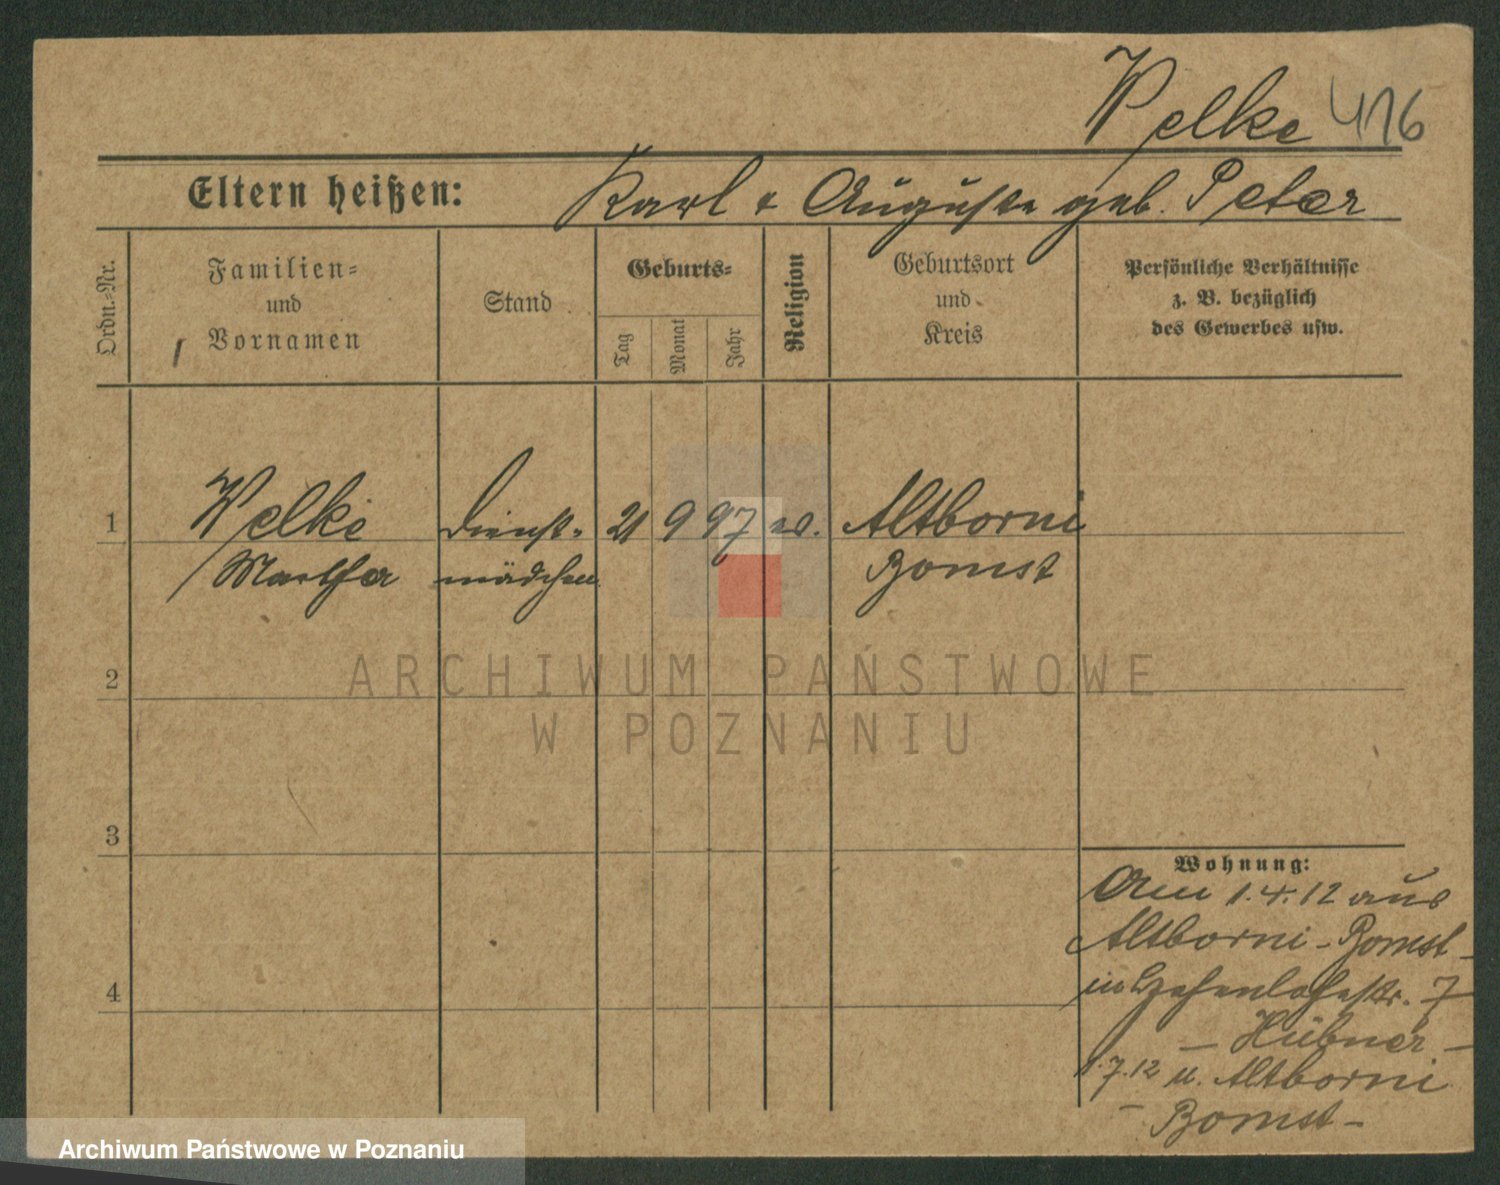 Welke 416
Eltern heißen: Karl & Auguste geb. Peter
Ordn.-Nr.
Familien-
und
Vornamen
Stand
Geburts-
Tag
Monat
Jahr
Religion
Geburtsort
und
Kreis
Persönliche Verhältnisse
z. B. bezüglich
des Gewerbes usw.
1 Welke Dienst- 21 9 97 ev. Altborni
Martha mädchen Bomst
2
3
4
Wohnung:
Am 1.4.12 aus
Altborni - Bomst -
in Hohenlohestr. 7
- Hübner -
1.7.12 n. Altborni
- Bomst -
ARCHIWUM PAŃSTWOWE
W POZNANIU
Archiwum Państwowe w Poznaniu